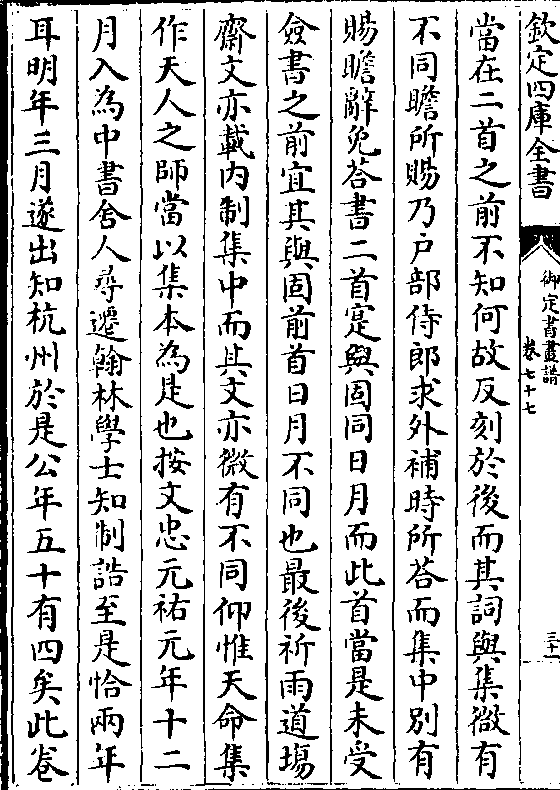 欽定四庫全書
御定書畫譜
卷七十七
三十
當在二首之前不知何故反刻於後而其詞與集微有
不同瞻所賜乃戶部侍郎求外補時所荅而集中別有
賜瞻辭免荅書二首寔與固同日月而此首當是未受
僉書之前宜其與固前首日月不同也最後祈雨道場
齋文亦載内制集中而其文亦微有不同仰惟天命集
作天人之師當以集本為是也按文忠元祐元年十二
月入為中書舍人尋遷翰林學士知制誥至是恰兩年
耳明年三月遂出知杭州於是公年五十有四矣此卷